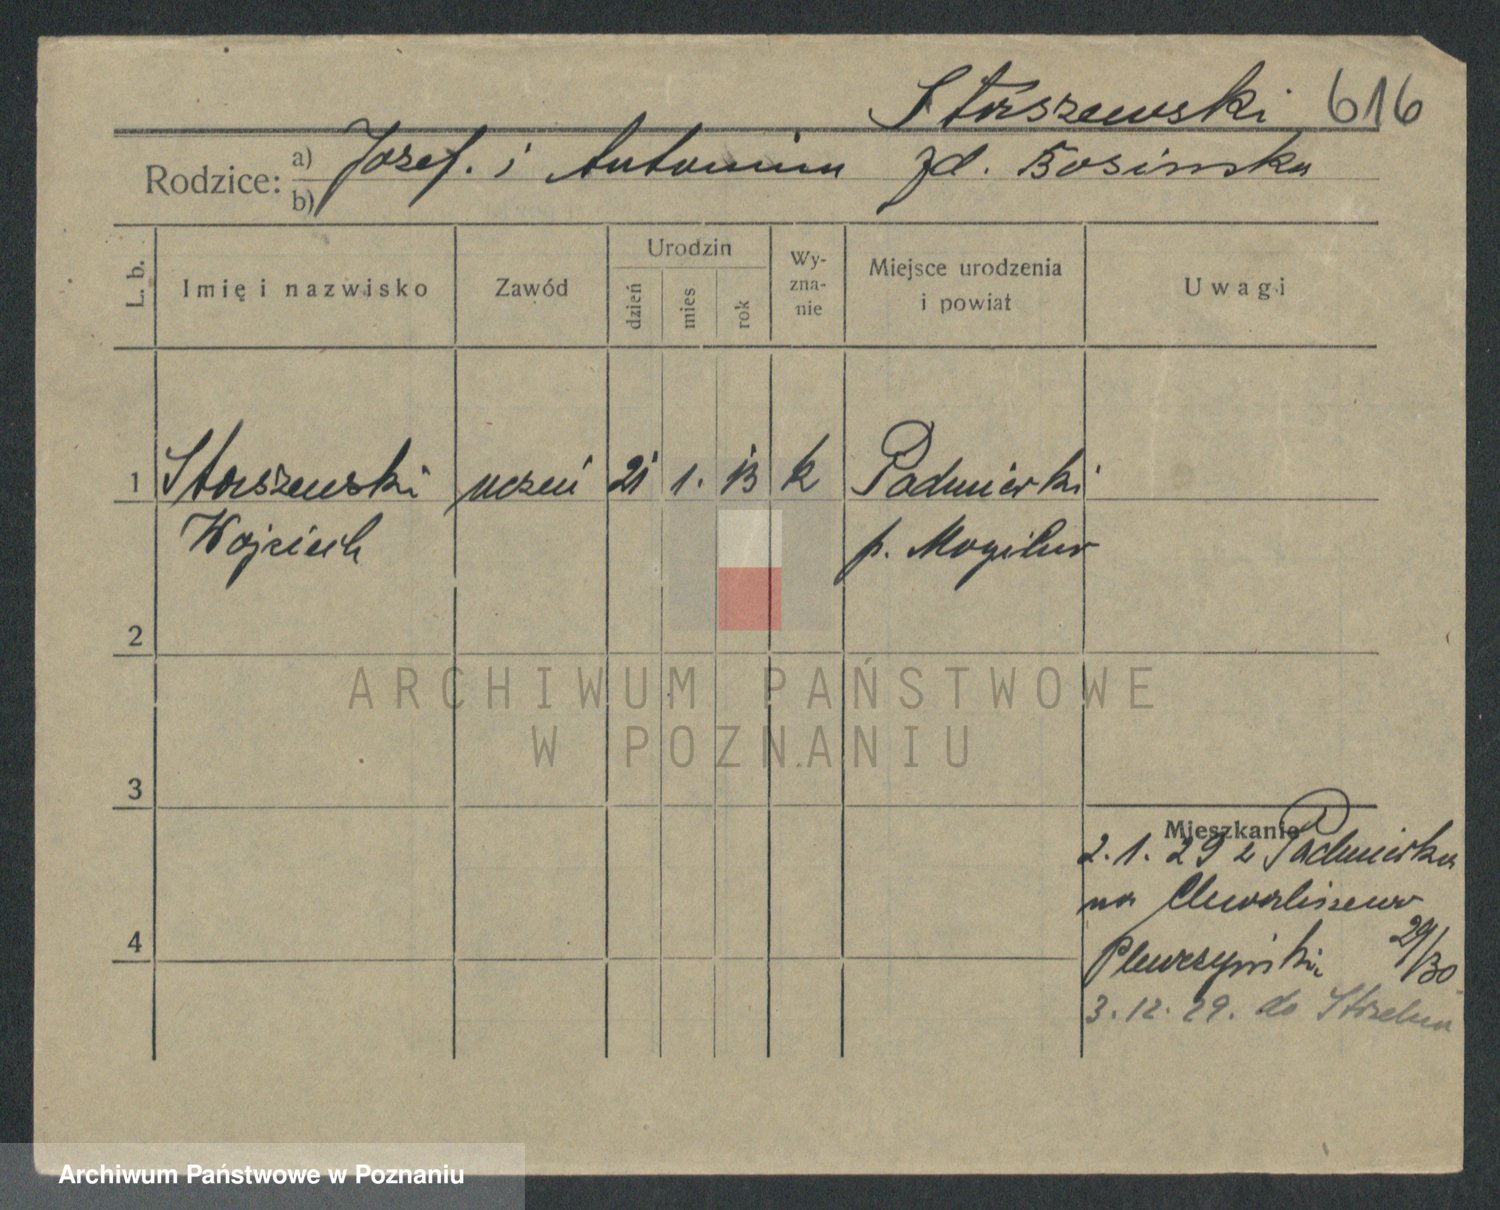 Staszewski 616
Rodzice: a) Józef. i Antonina zd. Bosinska
b)
L. b. Imię i nazwisko Zawód Urodzin dzień mies rok Wy-zna-nie Miejsce urodzenia i powiat Uwagi
1 Staszewski uczeń 21 1. 13 k Padniewki
Wojciech p. Mogilno
2
ARCHIWUM PAŃSTWOWE
W POZNANIU
3
Mieszkanie
2.1.29 z Padniewka
na Chwaliszewo
4
29/30
3.12.29. do Strzelna
Archiwum Państwowe w Poznaniu